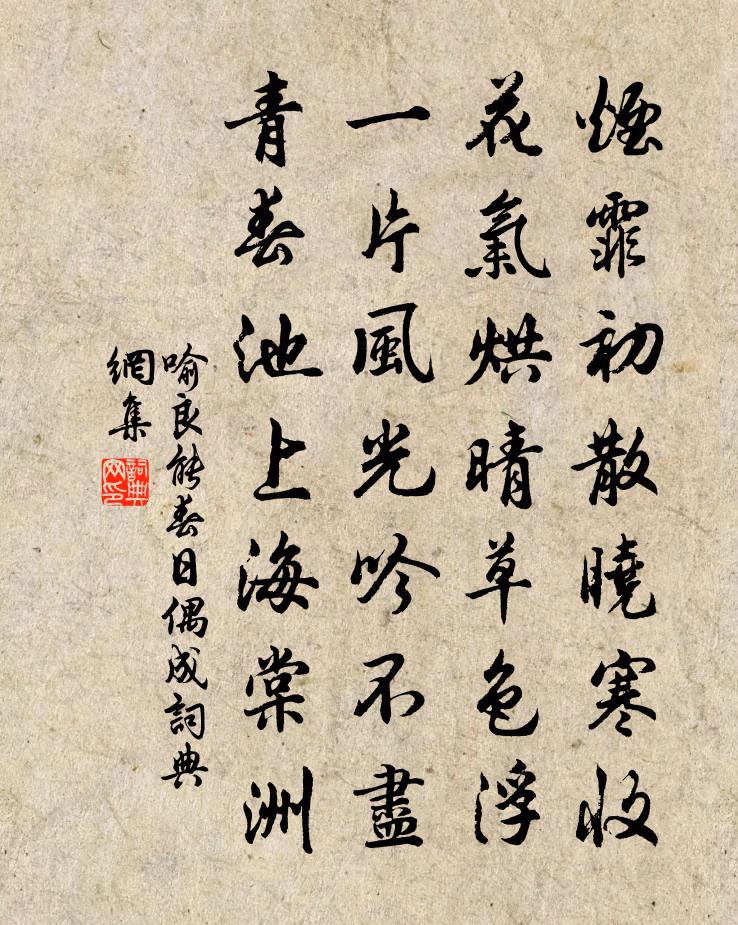 煙霏初散曉寒收
花氣烘晴草色浮
一片風光吟不盡
青春池上海棠洲
喻良能春日偶成詞典
網集
詞典
网印